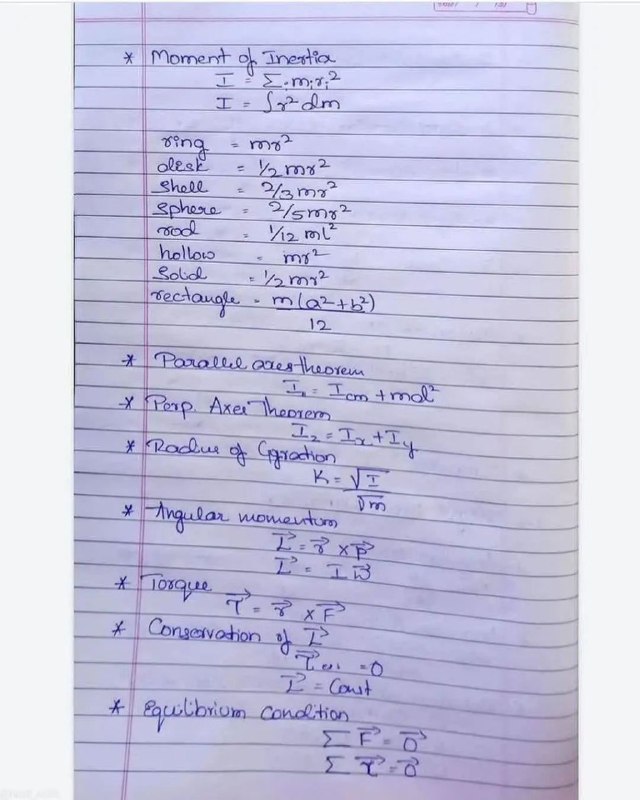 * Moment of Inertia
I = Σ miri²
I = ∫r² dm
ring = mr²
disk = 1/2 mr²
Shell = 2/3 mr²
Sphere = 2/5 mr²
rod = 1/12 ml²
hollow = mr²
Solid = 1/2 mr²
rectangle = m(a²+b²)
12
* Parallel axes theorem
I = Icm + md²
* Perp. Axes Theorem
Iz = Ix + Iy
* Radius of Gyration
K = √I
√m
* Angular momentum
L⃗ = r⃗ × P⃗
L⃗ = I ω⃗
* Torque
τ⃗ = r⃗ × F⃗
* Conservation of L⃗
τ⃗ = 0
L⃗ = Const
* Equilibrium Condition
Σ F⃗ = 0⃗
Σ τ⃗ = 0⃗